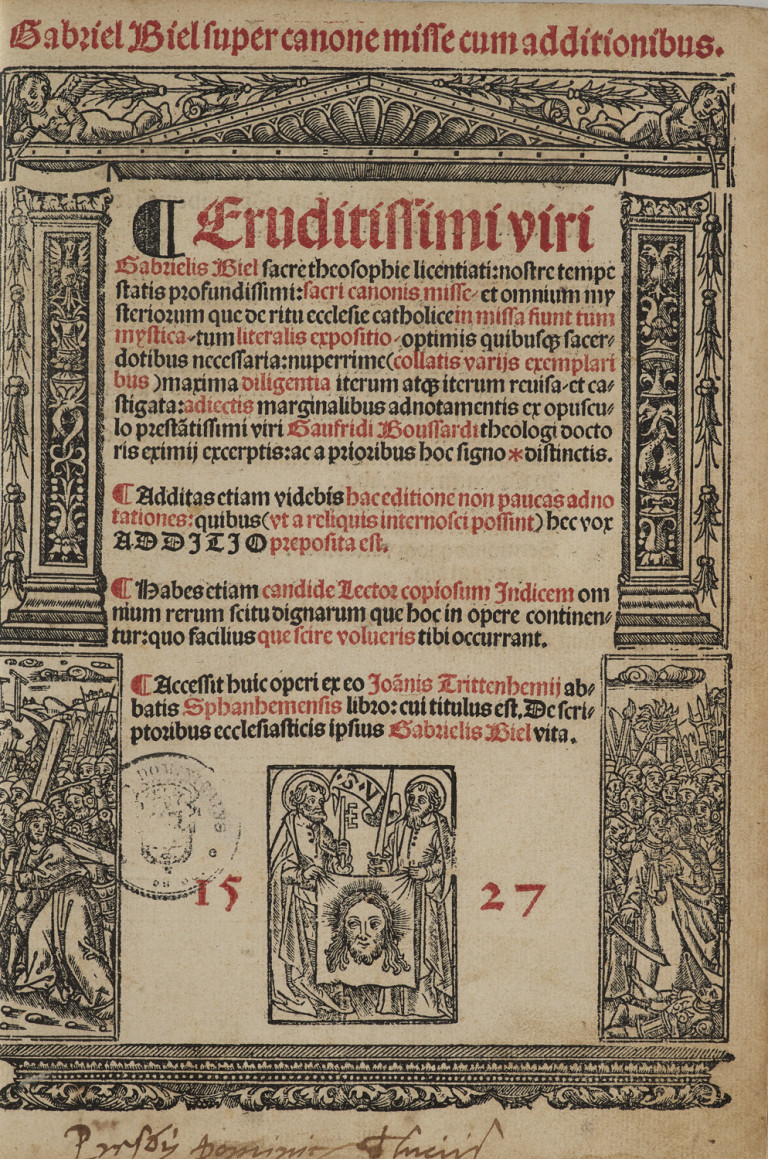 Gabriel Biel super canone misse cum additionibus.
¶ Eruditissimi viri
Gabrielis Biel sacre theosophie licentiati: nostre tempe
statis profundissimi: sacri canonis misse, et omnium my
steriorum que de ritu ecclesie catholice in missa fiunt tum
mystica, tum literalis expositio, optimis quibusqꝫ sacer⸗
dotibus necessaria: nuperrime (collatis varijs exemplari
bus) maxima diligentia iterum atqꝫ iterum reuisa, et ca⸗
stigata: adiectis marginalibus adnotamentis ex opuscu⸗
lo prestãtissimi viri Gaufridi Boussardi theologi docto
ris eximij excerptis: ac a prioribus hoc signo * distinctis.
¶ Additas etiam videbis hac editione non paucas adno
tationes: quibus (vt a reliquis internosci possint) hec vox
ADDITIO preposita est.
¶ Habes etiam candide Lector copiosum Indicem om
nium rerum scitu dignarum que hoc in opere continen⸗
tur: quo facilius que scire volueris tibi occurrant.
¶ Accessit huic operi ex eo Joãnis Trittenhemij ab⸗
batis Sphanhemensis libro: cui titulus est. De scri⸗
ptoribus ecclesiasticis ipsius Gabrielis Biel vita.
S V E
15 27